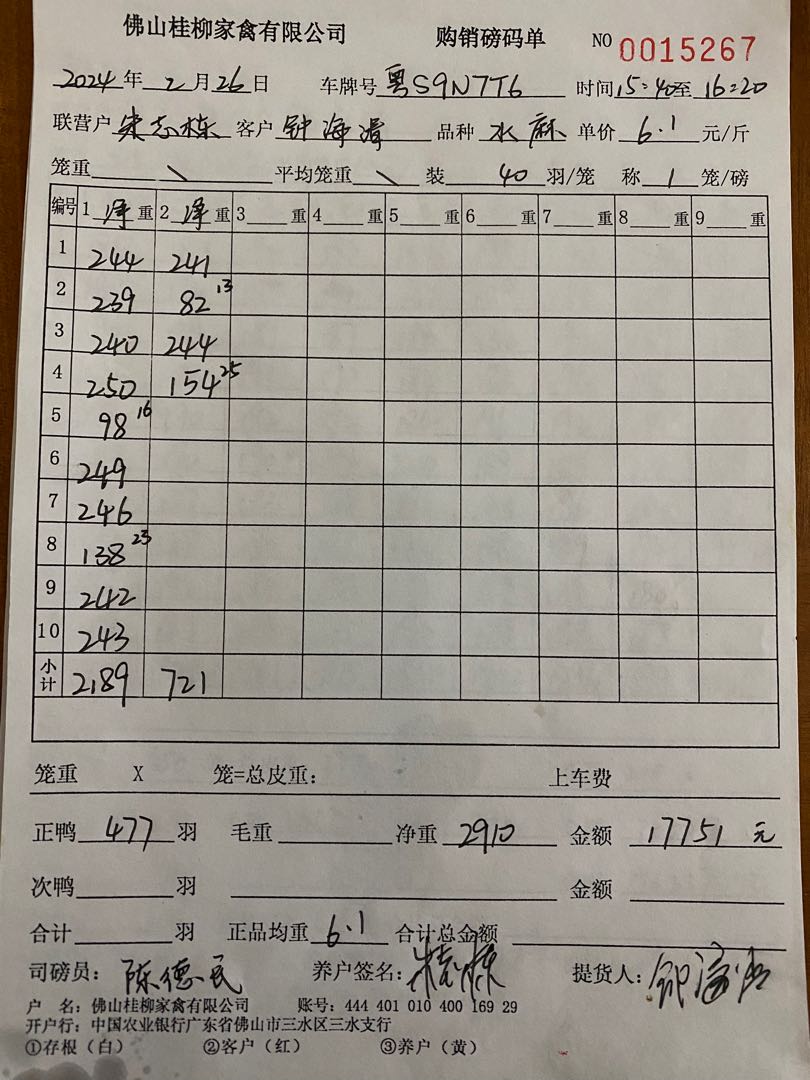 佛山桂柳家禽有限公司 购销磅码单 NO 0015267
2024年 2月26日 车牌号 粤S9N7T6 时间15:40至16:20
联营户 宋志栋 客户 钟海清 品种 水麻 单价 6.1 元/斤
笼重 \ 平均笼重 \ 装 40 羽/笼 称 1 笼/磅
编号 1 净重 2 净重 3 重 4 重 5 重 6 重 7 重 8 重 9 重
1 244 241
2 239 82 13
3 240 244
4 250 154 25
5 98 16
6 249
7 246
8 138 23
9 242
10 243
小计 2189 721
笼重 X 笼=总皮重: 上车费
正鸭 477 羽 毛重 净重 2910 金额 17751 元
次鸭 羽 金额
合计 羽 正品均重 6.1 合计总金额
司磅员: 陈德民 养户签名: 提货人:
户 名: 佛山桂柳家禽有限公司 账号: 444 401 010 400 169 29
开户行: 中国农业银行广东省佛山市三水区三水支行
①存根(白) ②客户(红) ③养户(黄)